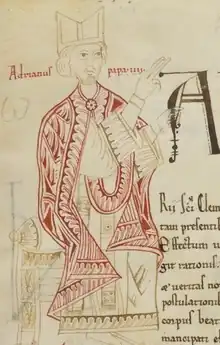 Adrianus papa·iiii·
A
Rii sc̄i Clem
tam presenti
Effectum u
git rationis.
æ veritat no
postulation
corpus bear
mancipari ef